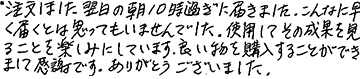 ・注文はした翌日の朝10時過ぎに届きました。こんなに早
く届くとは思ってもいませんでした。使用してその成果を見
ることを楽しみにしています。良い物を購入することができ
まして感謝です。ありがとうございました。